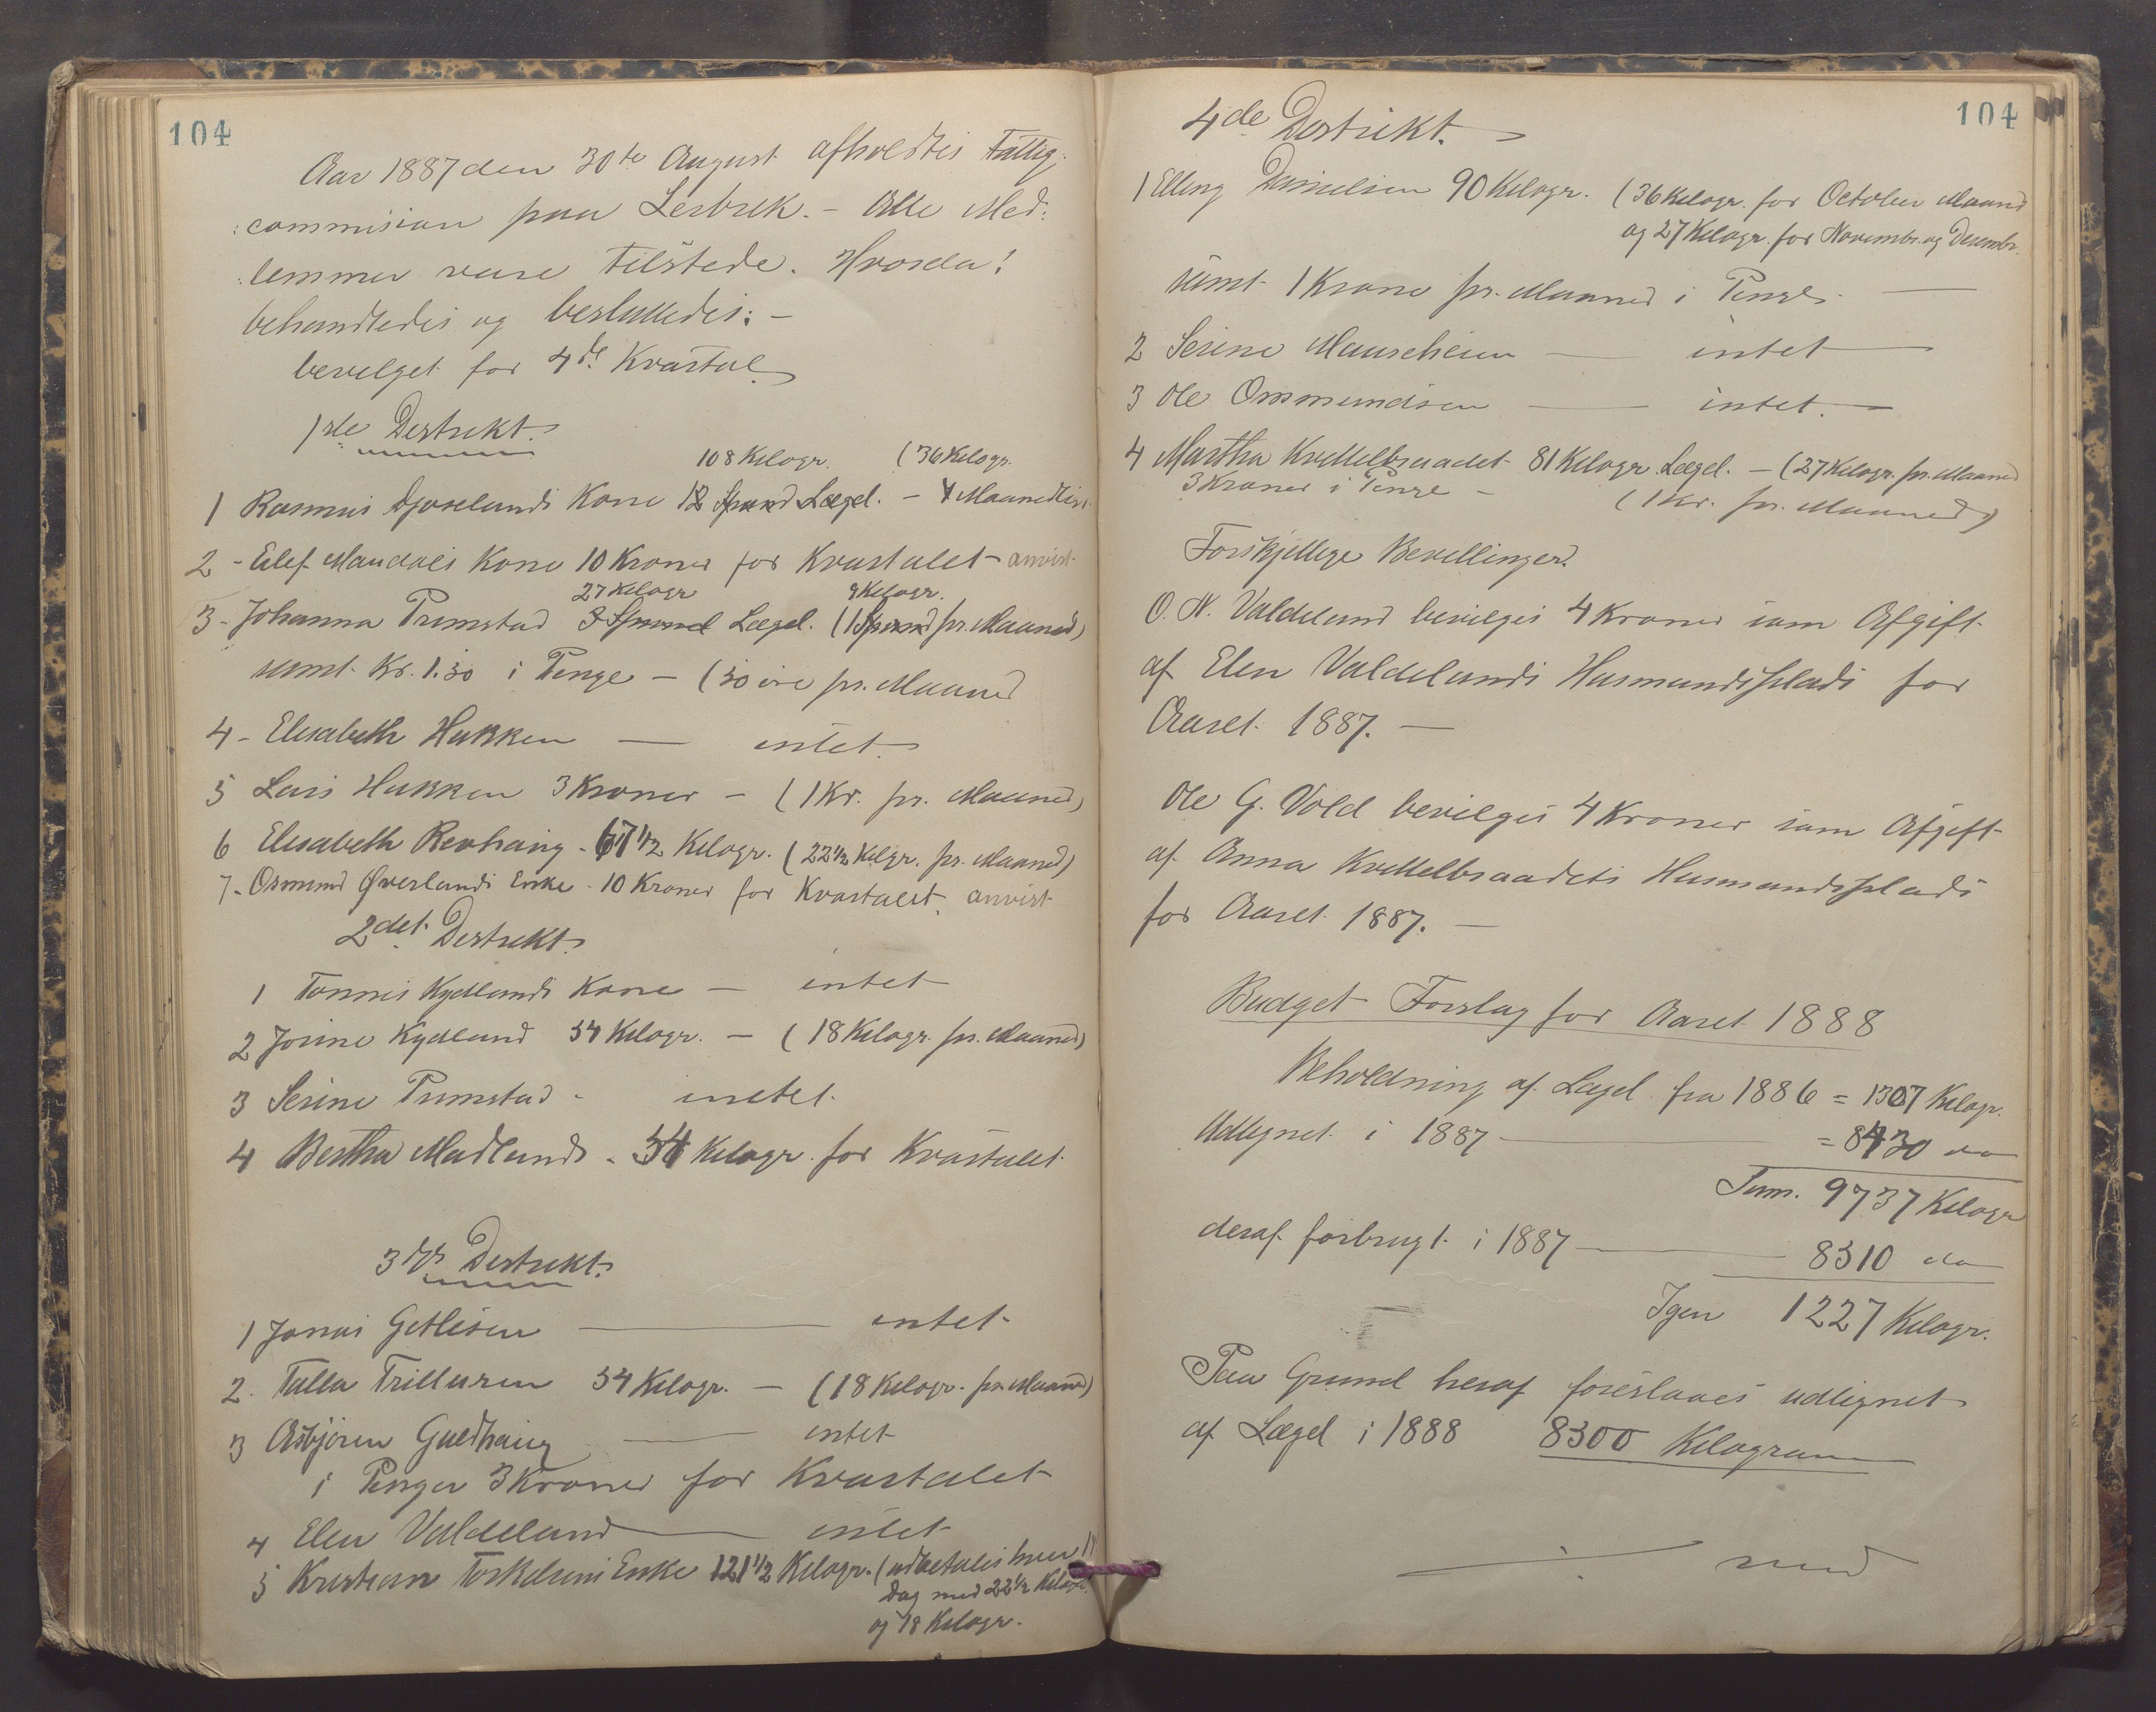 104
Aar 1887 den 30te August afholdtes Fattig:
:commision paa Lerbrek. - Alle Med:
:lemmer vare tilstede. Hvorda!
behandledes og besluttedes: -
bevilget for 4de Kvartal
1ste Destrekt.
108 Kilogr. (36 Kilogr.
1 Rasmus Djoselands Kone 12 Spand Lægd. - 4 Maanedlig
2 - Eilef Maudals Kone 10 Kroner for Kvartalet - anvist
27 Kilogr 9 Kilogr.
3 - Johanna Prumstad 3 Spand Lægd. (1 Spand pr. Maaned)
samt Kr. 1.50 i Penge - (50 øre pr. Maaned
4 - Elisabeth Hukken — intet
5 Lars Hukken 3 Kroner - (1 Kr. pr. Maaned)
6 Elisabeth Revhaug - 67 1/2 Kilogr. (22 1/2 Kilgr. pr. Maaned)
7 - Osmund Øverlands Enke - 10 Kroner for Kvartalet anvist
2det Destrekt.
1 Tønnes Kydlands Kone — intet
2 Josine Kydland 54 Kilogr. — (18 Kilogr. pr. Maaned)
3 Serine Prumstad - intet.
4 Bertha Madlands - 54 Kilogr. for Kvartalet
3die Destrekt.
1 Jonas Getlesen — intet
2. Talla Trilluren 54 Kilogr. — (18 Kilogr. pr. Maaned)
3 Asbjørn Guldhaug — intet
i Penger 3 Kroner for Kvartalet
4 Elen Valdeland — intet
5 Kristian Torkelsens Enke 121 1/2 Kilogr. (udbetales hver 14
Dag med 22 1/2 Kilogr.
og 18 Kilogr.
104
4de Destrikt.
1 Elling Danielsen 90 Kilogr. (36 Kilogr. for October Maaned
og 27 Kilogr. for Novembr. og Desembr.
samt 1 Krone pr. Maaned i Penge. —
2 Serine Maureheien — intet —
3 Ole Ommundsen — intet. —
4 Martha Kvittelbraadet 81 Kilogr. Lægd. - (27 Kilogr. pr. Maaned
3 Kroner i Penge - (1 Kr. pr. Maaned)
Forskjellige Bevillinger.
O. N. Valdeland bevilges 4 Kroner som Afgift
af Elen Valdelands Husmandsplads for
Aaret 1887. —
Ole G. Vold bevilges 4 Kroner som Afgift
af Anna Kvittelbraadets Husmandsplads
for Aaret 1887. —
Budget Forslag for Aaret 1888
Beholdning af Lægd fra 1886 = 1307 Kilogr.
Udlignet i 1887 — = 8430 do
Sum. 9737 Kilogr
deraf forbrugt i 1887 — 8510 do
Igen 1227 Kilogr.
Paa Grund heraf foreslaaes udlignet
af Lægd i 1888 8300 Kilogram